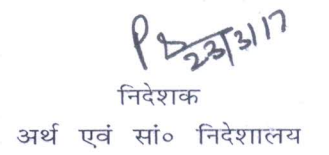 23/3/17
निदेशक
अर्थ एवं सां० निदेशालय